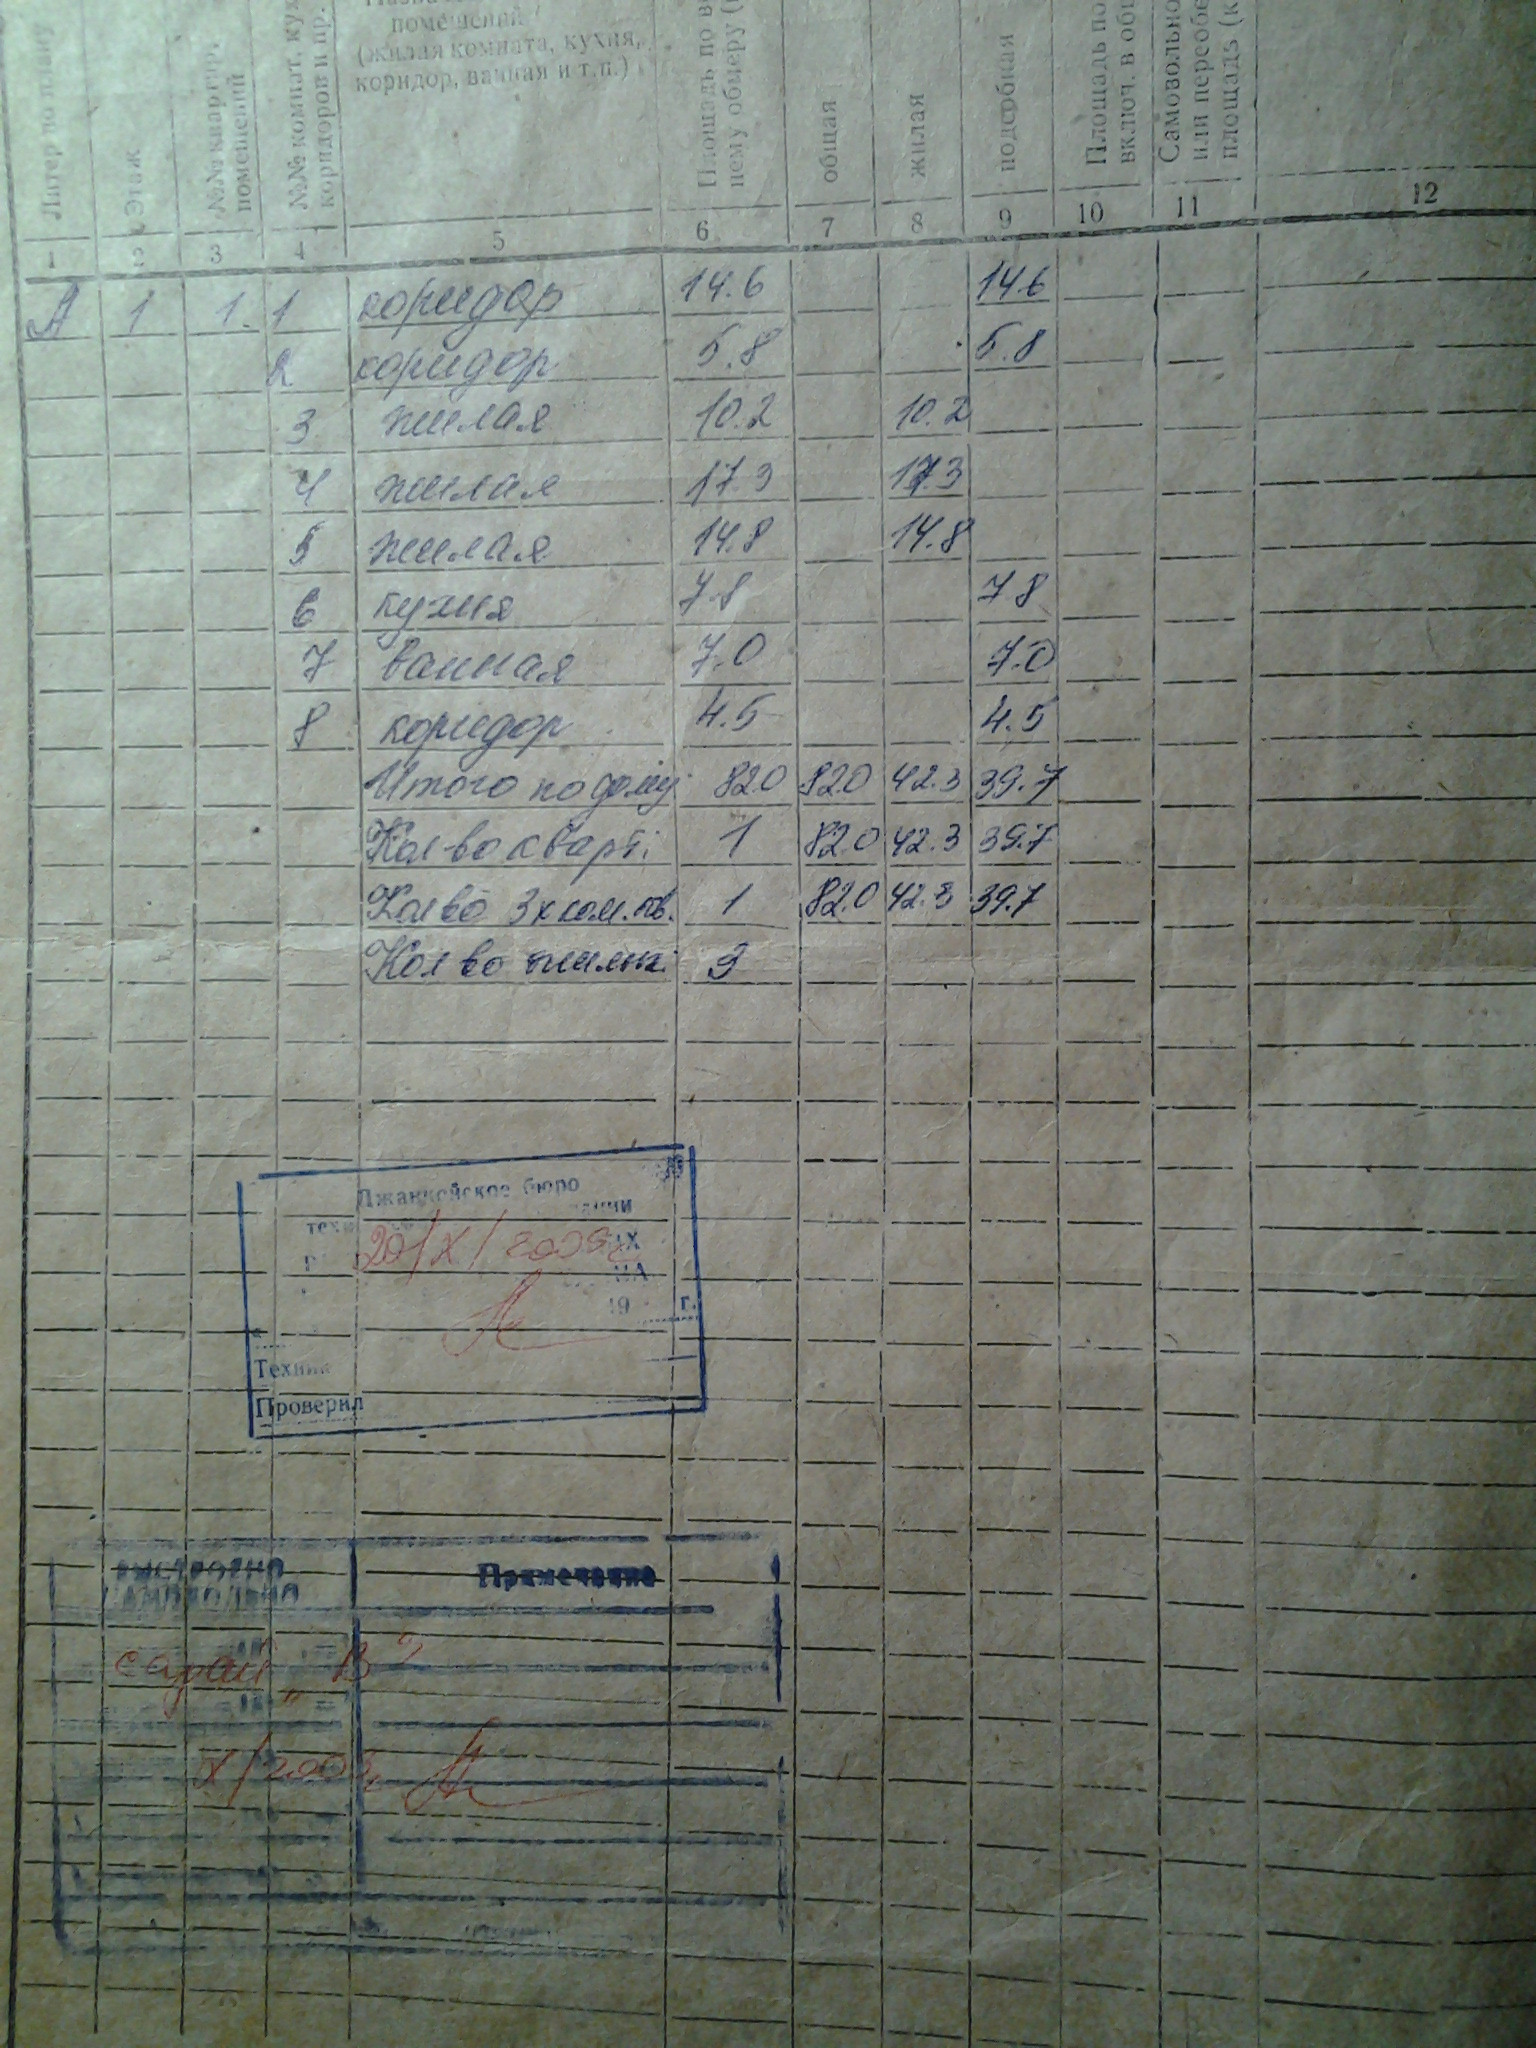 помещений
(жилая комната, кухня,
коридор, ванная и т.п.)
Литер по плану
Этаж
№№ квартир,
помещений
№№ комнат, кух
коридоров и пр.
Площадь по
нему обмеру
общая
жилая
подсобная
Площадь по
включ. в общ
Самовольно
или переобо
площадь (к
1 2 3 4 5 6 7 8 9 10 11 12
А 1 1 1 коридор 14.6 14.6
2 коридор 5.8 5.8
3 жилая 10.2 10.2
4 жилая 17.3 17.3
5 жилая 14.8 14.8
6 кухня 7.8 7.8
7 ванная 7.0 7.0
8 коридор 4.5 4.5
Итого по дому 82.0 82.0 42.3 39.7
Кол-во кварт. 1 82.0 42.3 39.7
Колво 3х ком. кв. 1 82.0 42.3 39.7
Кол во жилых 3
Джанкойское бюро
20/X/
19 г.
Техник
Проверил
ВЫСТРОЕНО Примечание
САМОВОЛЬНО
сарай „В"
X/